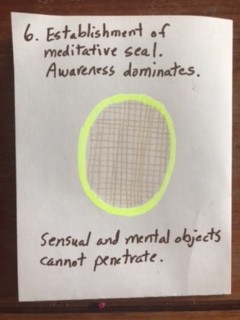 6. Establishment of
meditative seal.
Awareness dominates.
Sensual and mental objects
cannot penetrate.